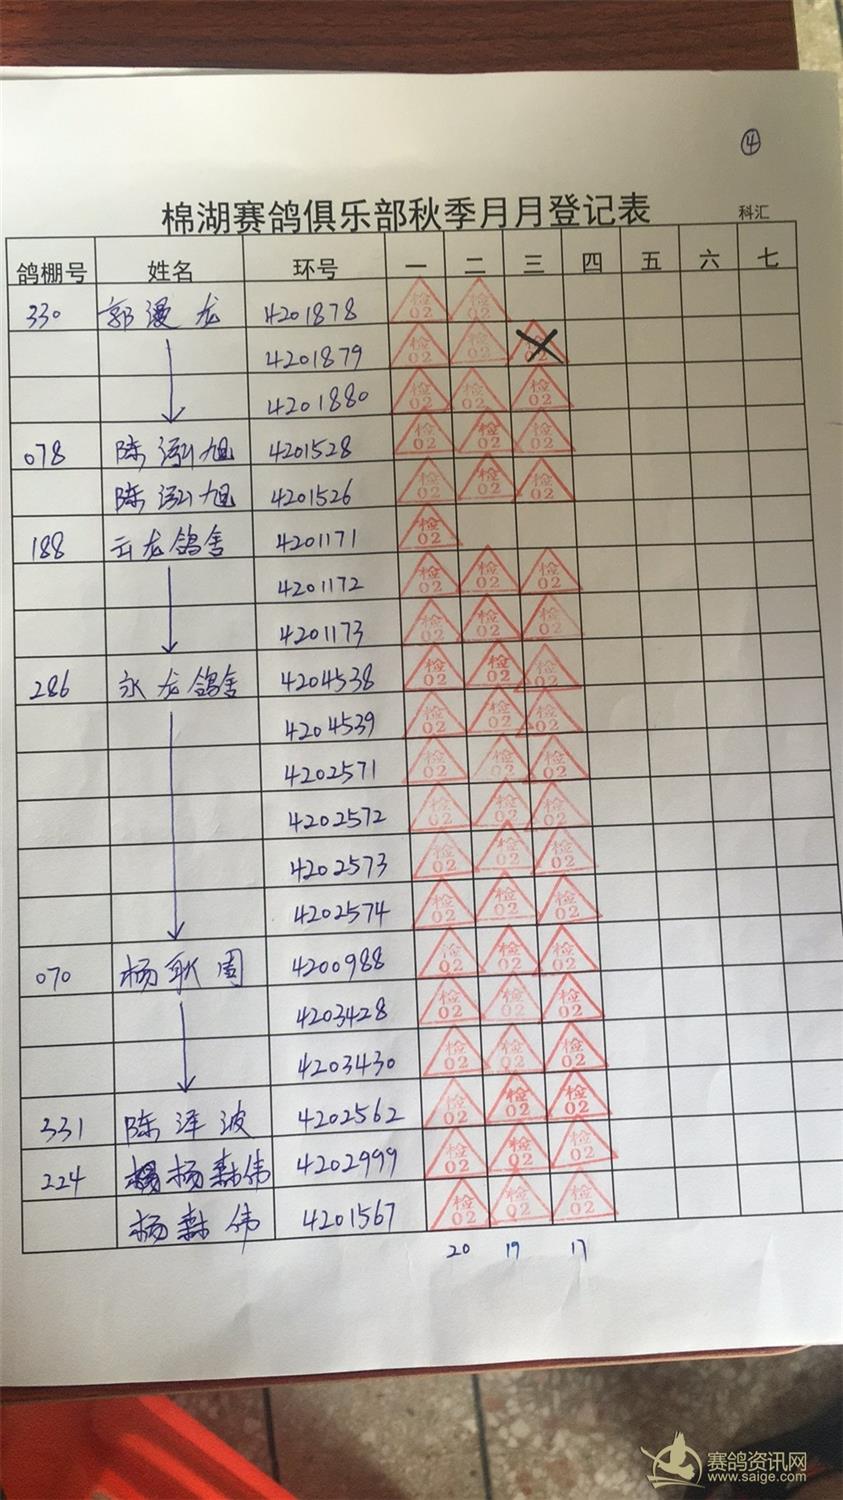 ④
棉湖赛鸽俱乐部秋季月月登记表 科汇
鸽棚号 姓名 环号 一 二 三 四 五 六 七
330 郭漫龙 4201878 检02 检02
4201879 检02 检02 检02
4201880 检02 检02 检02
078 陈 旭 4201528 检02 检02 检02
陈 旭 4201526 检02 检02 检02
188 云龙鸽舍 4201171 检02
4201172 检02 检02 检02
4201173 检02 检02 检02
286 永龙鸽舍 4204538 检02 检02 检02
4204539 检02 检02 检02
4202571 检02 检02 检02
4202572 检02 检02 检02
4202573 检02 检02 检02
4202574 检02 检02 检02
070 杨耿周 4200988 检02 检02 检02
4203428 检02 检02 检02
4203430 检02 检02 检02
331 陈泽波 4202562 检02 检02 检02
224 杨森伟 4202999 检02 检02 检02
杨森伟 4201567 检02 检02 检02
20 19 17
赛鸽资讯网
www.saige.com